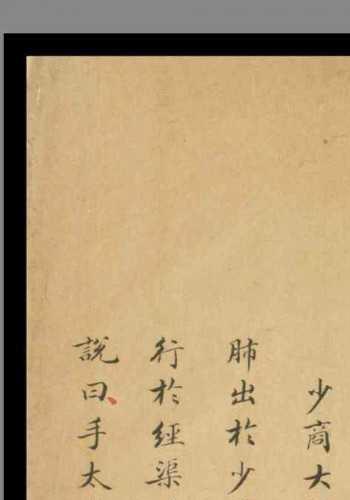 少商大
肺出於少
行於經渠
說曰手太